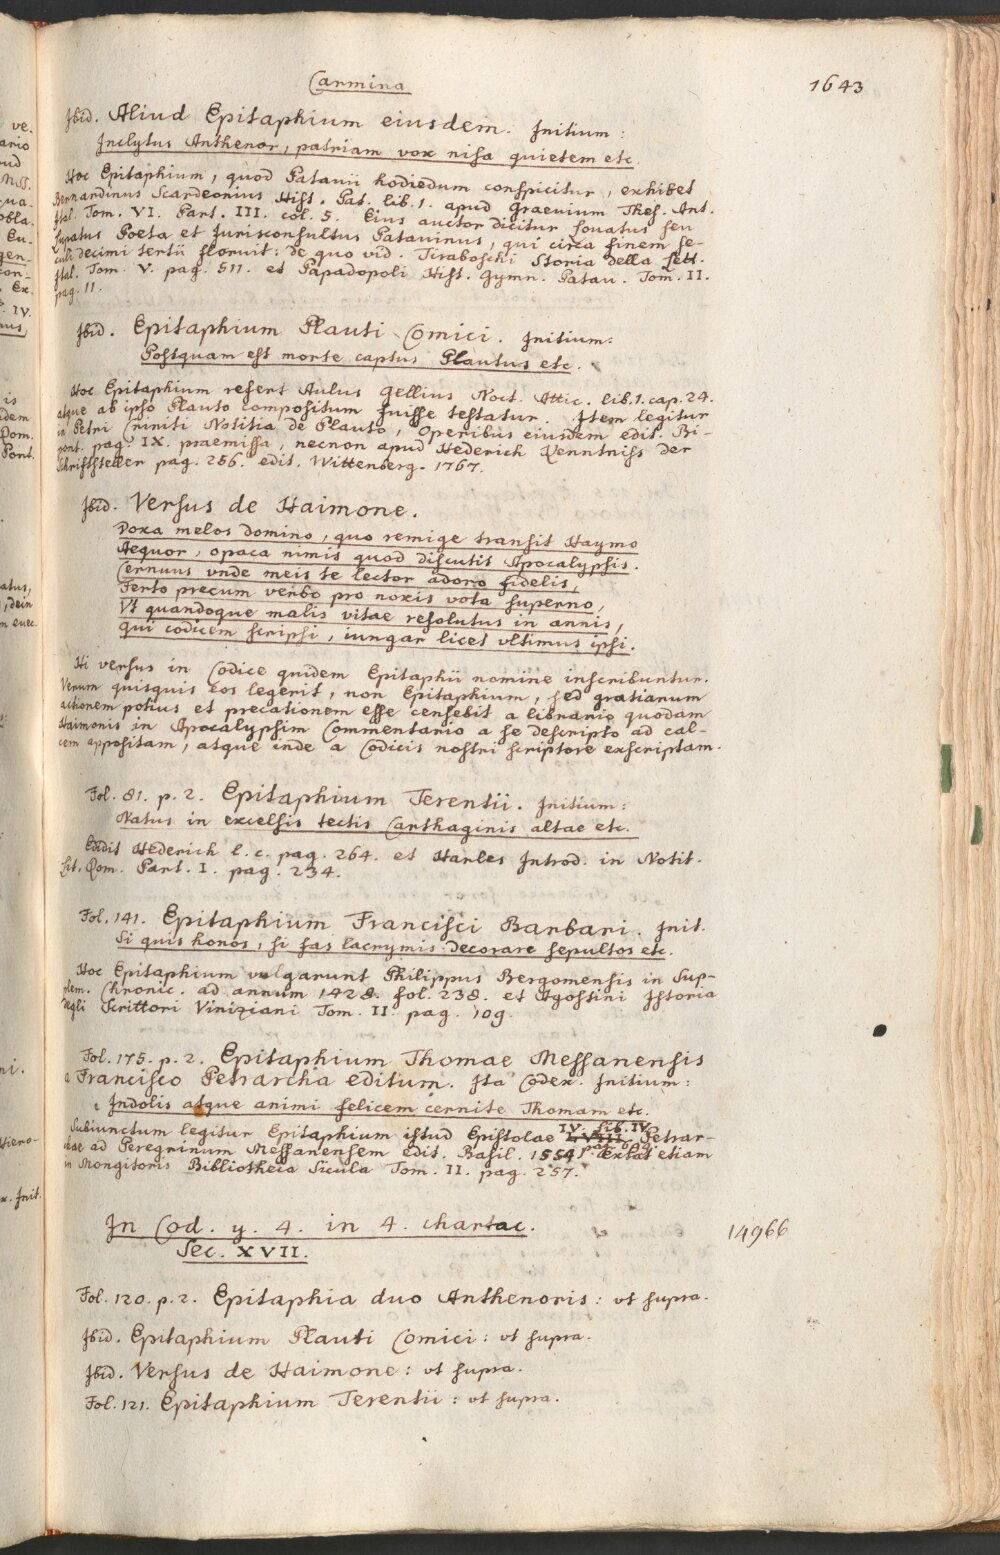 Carmina
1643
Ibid. Aliud Epitaphium eiusdem. Initium:
Inclytus Anthenor, patriam vox nisa quietem etc.
Hoc Epitaphium, quod Patavii hodiedum conspicitur, exhibet
Bernardinus Scardeonius Hist. Pat. lib. 1. apud Graevium Thes. Ant.
Ital. Tom. VI. Part. III. col. 5. Eius auctor dicitur Lovatus seu
Lupatus Poeta et Iurisconsultus Patavinus, qui circa finem se-
culi decimi tertii floruit: de quo vid. Tiraboschi Storia della Lett.
Ital. Tom. V. pag. 511. et Papadopoli Hist. Gymn. Patav. Tom. II.
pag. 11.
Ibid. Epitaphium Plauti Comici. Initium:
Postquam est morte captus Plautus etc.
Hoc Epitaphium refert Aulus Gellius Noct. Attic. lib. 1. cap. 24.
atque ab ipso Plauto compositum fuisse testatur. Item legitur
in Petri Criniti Notitia de Plauto, Operibus eiusdem edit. Bi-
pont. pag. IX. praemissa, necnon apud Hederich Kenntniss der
Schriftsteller pag. 286. edit. Wittenberg. 1767.
Ibid. Versus de Haimone.
Doxa melos domino, quo remige transit Haymo
Aequor, opaca nimis quod discutit Apocalypsis.
Cernuus vnde meis te lector adoro fidelis,
Ferto precum verbo pro noxis vota superno,
Vt quandoque malis vitae resolutus in annis,
Qui codicem scripsi, iungar licet vltimus ipsi.
Hi versus in Codice quidem Epitaphii nomine inscribuntur.
Verum quisquis eos legerit, non Epitaphium, sed gratiarum
actionem potius et precationem esse censebit a librario quodam
Haimonis in Apocalypsim Commentario a se descripto ad cal-
cem appositam, atque inde a Codicis nostri scriptore exscriptam.
Fol. 81. p. 2. Epitaphium Terentii. Initium:
Natus in excelsis tectis Carthaginis altae etc.
Edidit Hederich l. c. pag. 264. et Harles Introd. in Notit.
Lit. Rom. Part. I. pag. 234.
Fol. 141. Epitaphium Francisci Barbari. Init.
Si quis honos, si fas lacrymis decorare sepultos etc.
Hoc Epitaphium vulgarunt Philippus Bergomensis in Sup-
plem. Chronic. ad annum 1428. fol. 238. et Agostini Istoria
degli Scrittori Viniziani Tom. II. pag. 109.
Fol. 175. p. 2. Epitaphium Thomae Messanensis
a Francisco Petrarcha editum. Ita Codex. Initium:
Indolis atque animi felicem cernite Thomam etc.
Subiunctum legitur Epitaphium istud Epistolae IV. lib. IV. Petrar-
chae ad Peregrinum Messanensem edit. Basil. 1554. Extat etiam
in Mongitoris Bibliotheca Sicula Tom. II. pag. 257.
In Cod. y. 4. in 4. chartac.
14966
Sec. XVII.
Fol. 120. p. 2. Epitaphia duo Anthenoris: vt supra.
Ibid. Epitaphium Plauti Comici: vt supra.
Ibid. Versus de Haimone: vt supra.
Fol. 121. Epitaphium Terentii: vt supra.